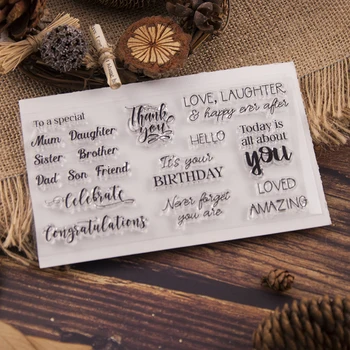 To a special
Mum Daughter
Sister Brother
Dad Son Friend
Celebrate
Congratulations
Thank
you
HELLO
It's your
BIRTHDAY
Never forget
you are
LOVE, LAUGHTER
& happy ever after
Today is
all about
you
LOVED
AMAZING